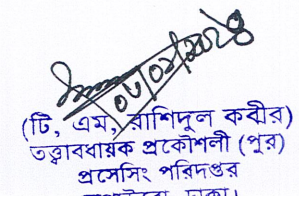 ০৮/০২/২০২৪
(টি, এম, রাশিদুল কবীর)
তত্ত্বাবধায়ক প্রকৌশলী (পুর)
প্রসেসিং পরিদপ্তর
ঢাকা।